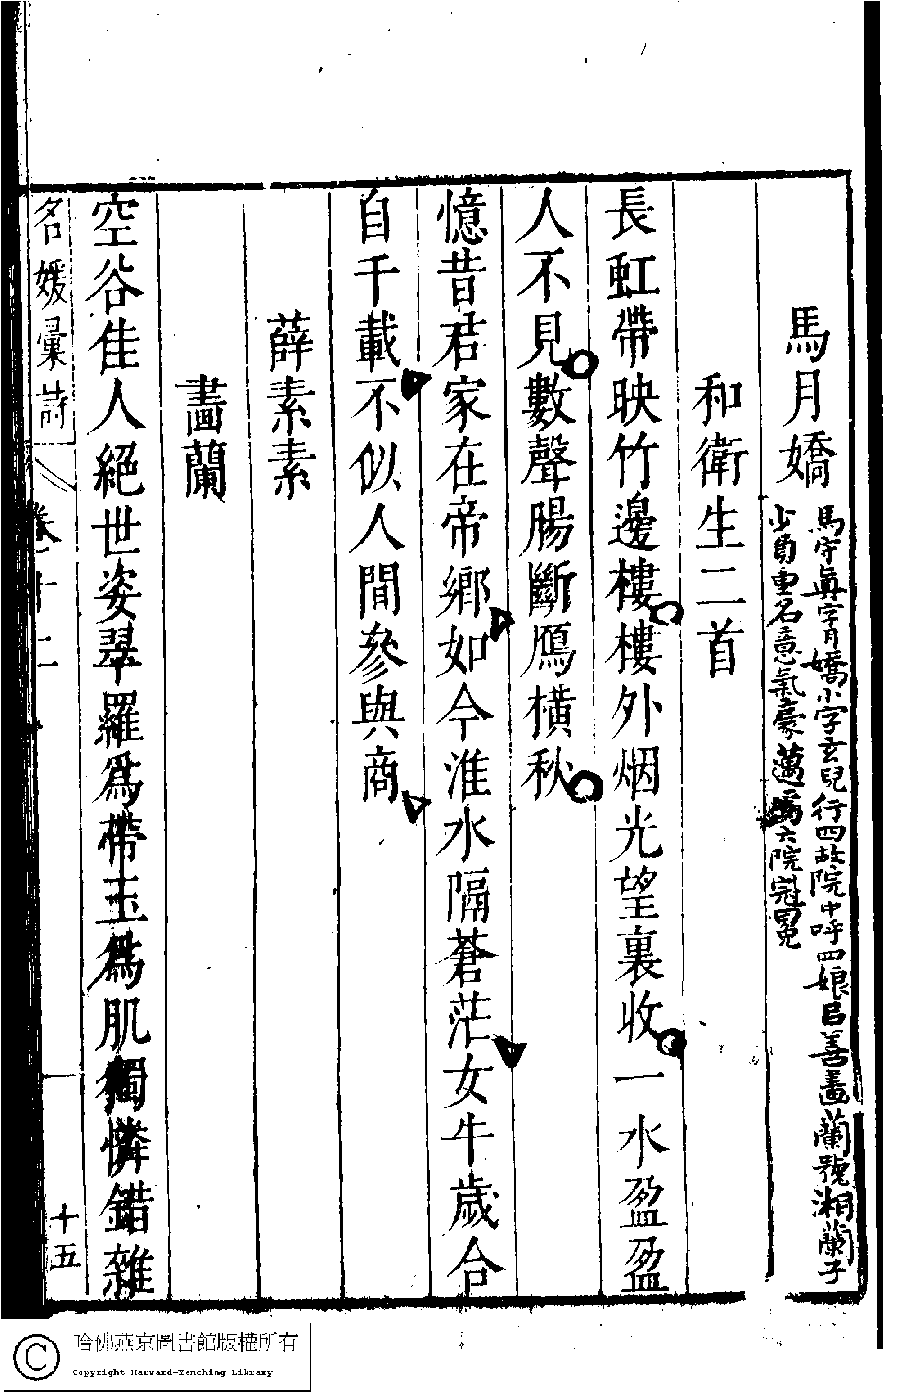 馬月嬌
馬守眞字月嬌小字玄兒行四故院中呼四娘以善畫蘭號湘蘭子
少負重名意氣豪邁爲六院冠冕
和衛生二首
長虹帶映竹邊樓樓外烟光望裏收一水盈盈
人不見數聲腸斷鴈橫秋
憶昔君家在帝鄉如今淮水隔蒼茫女牛歲合
自千載不似人間參與商
薛素素
畵蘭
空谷佳人絕世姿翠羅爲帶玉爲肌獨憐錯雜
名媛彙詩
卷十二
十五
哈佛燕京圖書館版權所有
Copyright Harvard-Yenching Library